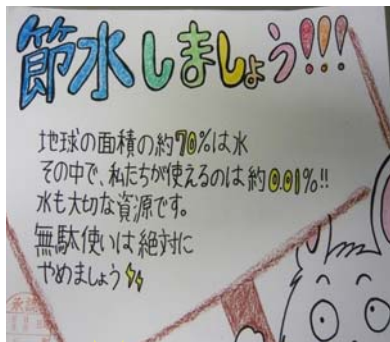 節水しましょう!!!
地球の面積の約70%は水
その中で、私たちが使えるのは約0.01%!!
水も大切な資源です。
無駄使いは絶対に
やめましょう